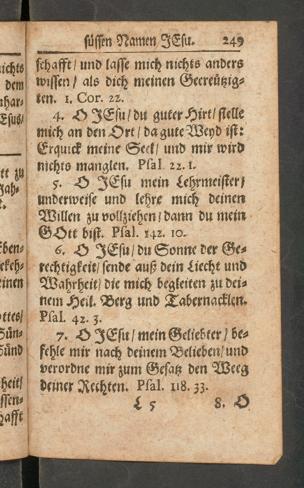 süssen Namen JEsu. 249
schafft / und lasse mich nichts anders
wissen / als dich meinen Gecreützig-
ten. 1. Cor. 22.
4. O JEsu / du guter Hirt / stelle
mich an den Ort / da gute Weyd ist:
Erquick meine Seel / und mir wird
nichts manglen. Psal. 22. 1.
5. O JEsu mein Lehrmeister /
underweise und lehre mich deinen
Willen zu vollziehen / dann du mein
GOtt bist. Psal. 142. 10.
6. O JEsu / du Sonne der Ge-
rechtigkeit / sende auß dein Liecht und
Wahrheit / die mich begleiten zu dei-
nem Heil. Berg und Tabernacklen.
Psal. 42. 3.
7. O JEsu / mein Geliebter / be-
fehle mir nach deinem Belieben / und
verordne mir zum Gesatz den Weeg
deiner Rechten. Psal. 118. 33.
L 5 8. O